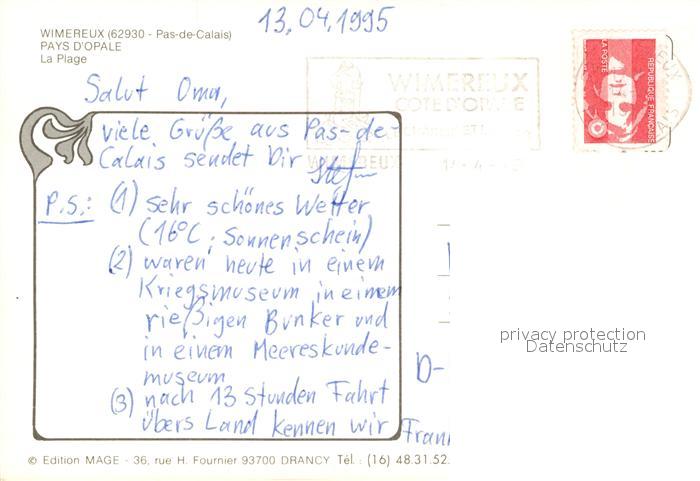 13.04.1995
WIMEREUX (62930 - Pas-de-Calais)
PAYS D'OPALE
La Plage
LA POSTE
REPUBLIQUE FRANÇAISE
WIMEREUX
COTE D'OPALE
Salut Oma,
viele Grüße aus Pas-de-
Calais sendet Dir Stefan
P.S.: (1) sehr schönes Wetter
(16°C, Sonnenschein)
(2) waren heute in einem
Kriegsmuseum in einem
rießigen Bunker und
in einem Meereskunde-
museum
(3) nach 13 Stunden Fahrt
übers Land kennen wir Fran
D-
privacy protection
Datenschutz
© Edition MAGE - 36, rue H. Fournier 93700 DRANCY Tél.: (16) 48.31.52.